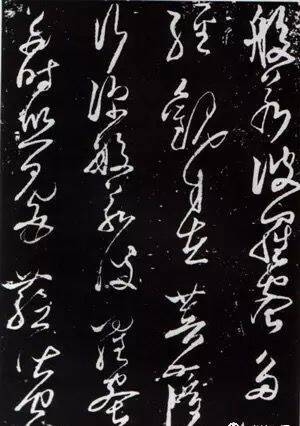 般若波羅蜜多
經觀自在菩薩
行深般若波羅蜜
多時照見五蘊皆空